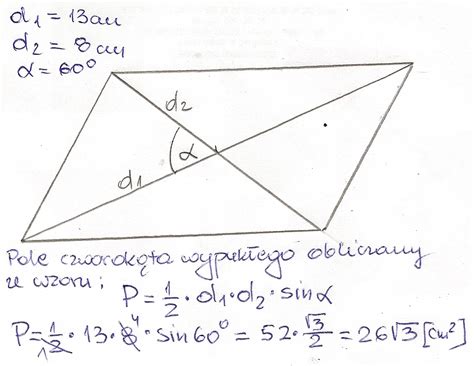 d₁ = 13cm
d₂ = 8cm
α = 60°
d₂
α
d₁
Pole czworokąta wypukłego obliczamy
ze wzoru:
P = 1/2 · d₁ · d₂ · sinα
P = 1/2 · 13 · 8 · sin60° = 52 · √3/2 = 26√3 [cm²]